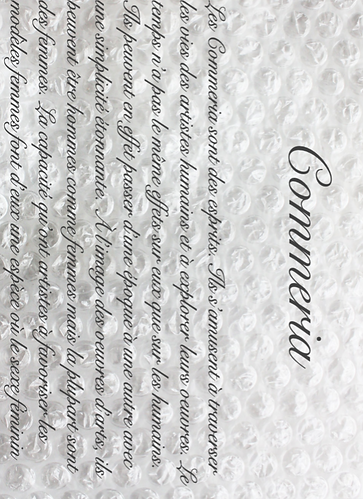 Commeria
Les Commeria sont des esprits. Ils s'amusent à traverser
les vies des artistes humains et à explorer leurs oeuvres. Le
temps n'a pas le même effets sur eux que sur les humains.
Ils peuvent en effet passer d'une époque à une autre avec
une simplicité étonante. À l'image des oeuvres d'arts, ils
peuvent être hommes comme femmes mais la plupart sont
des femmes. La capacité qu'ont artistes à favoriser les
modèles femmes font d'eux une espèce où la sexe féminin